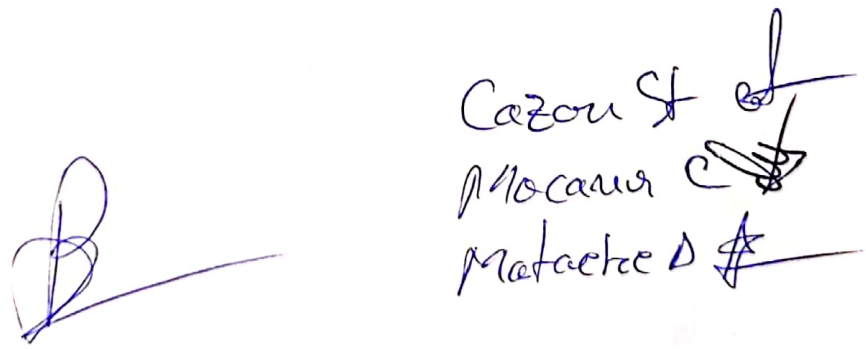 Cazou St
Mocanu C
Matache D